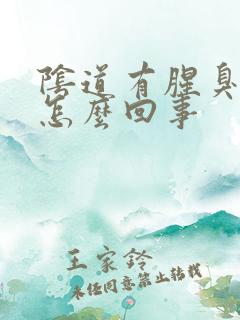 陰道有腥臭
怎麼回事
王家鈴
未經同意禁止轉載